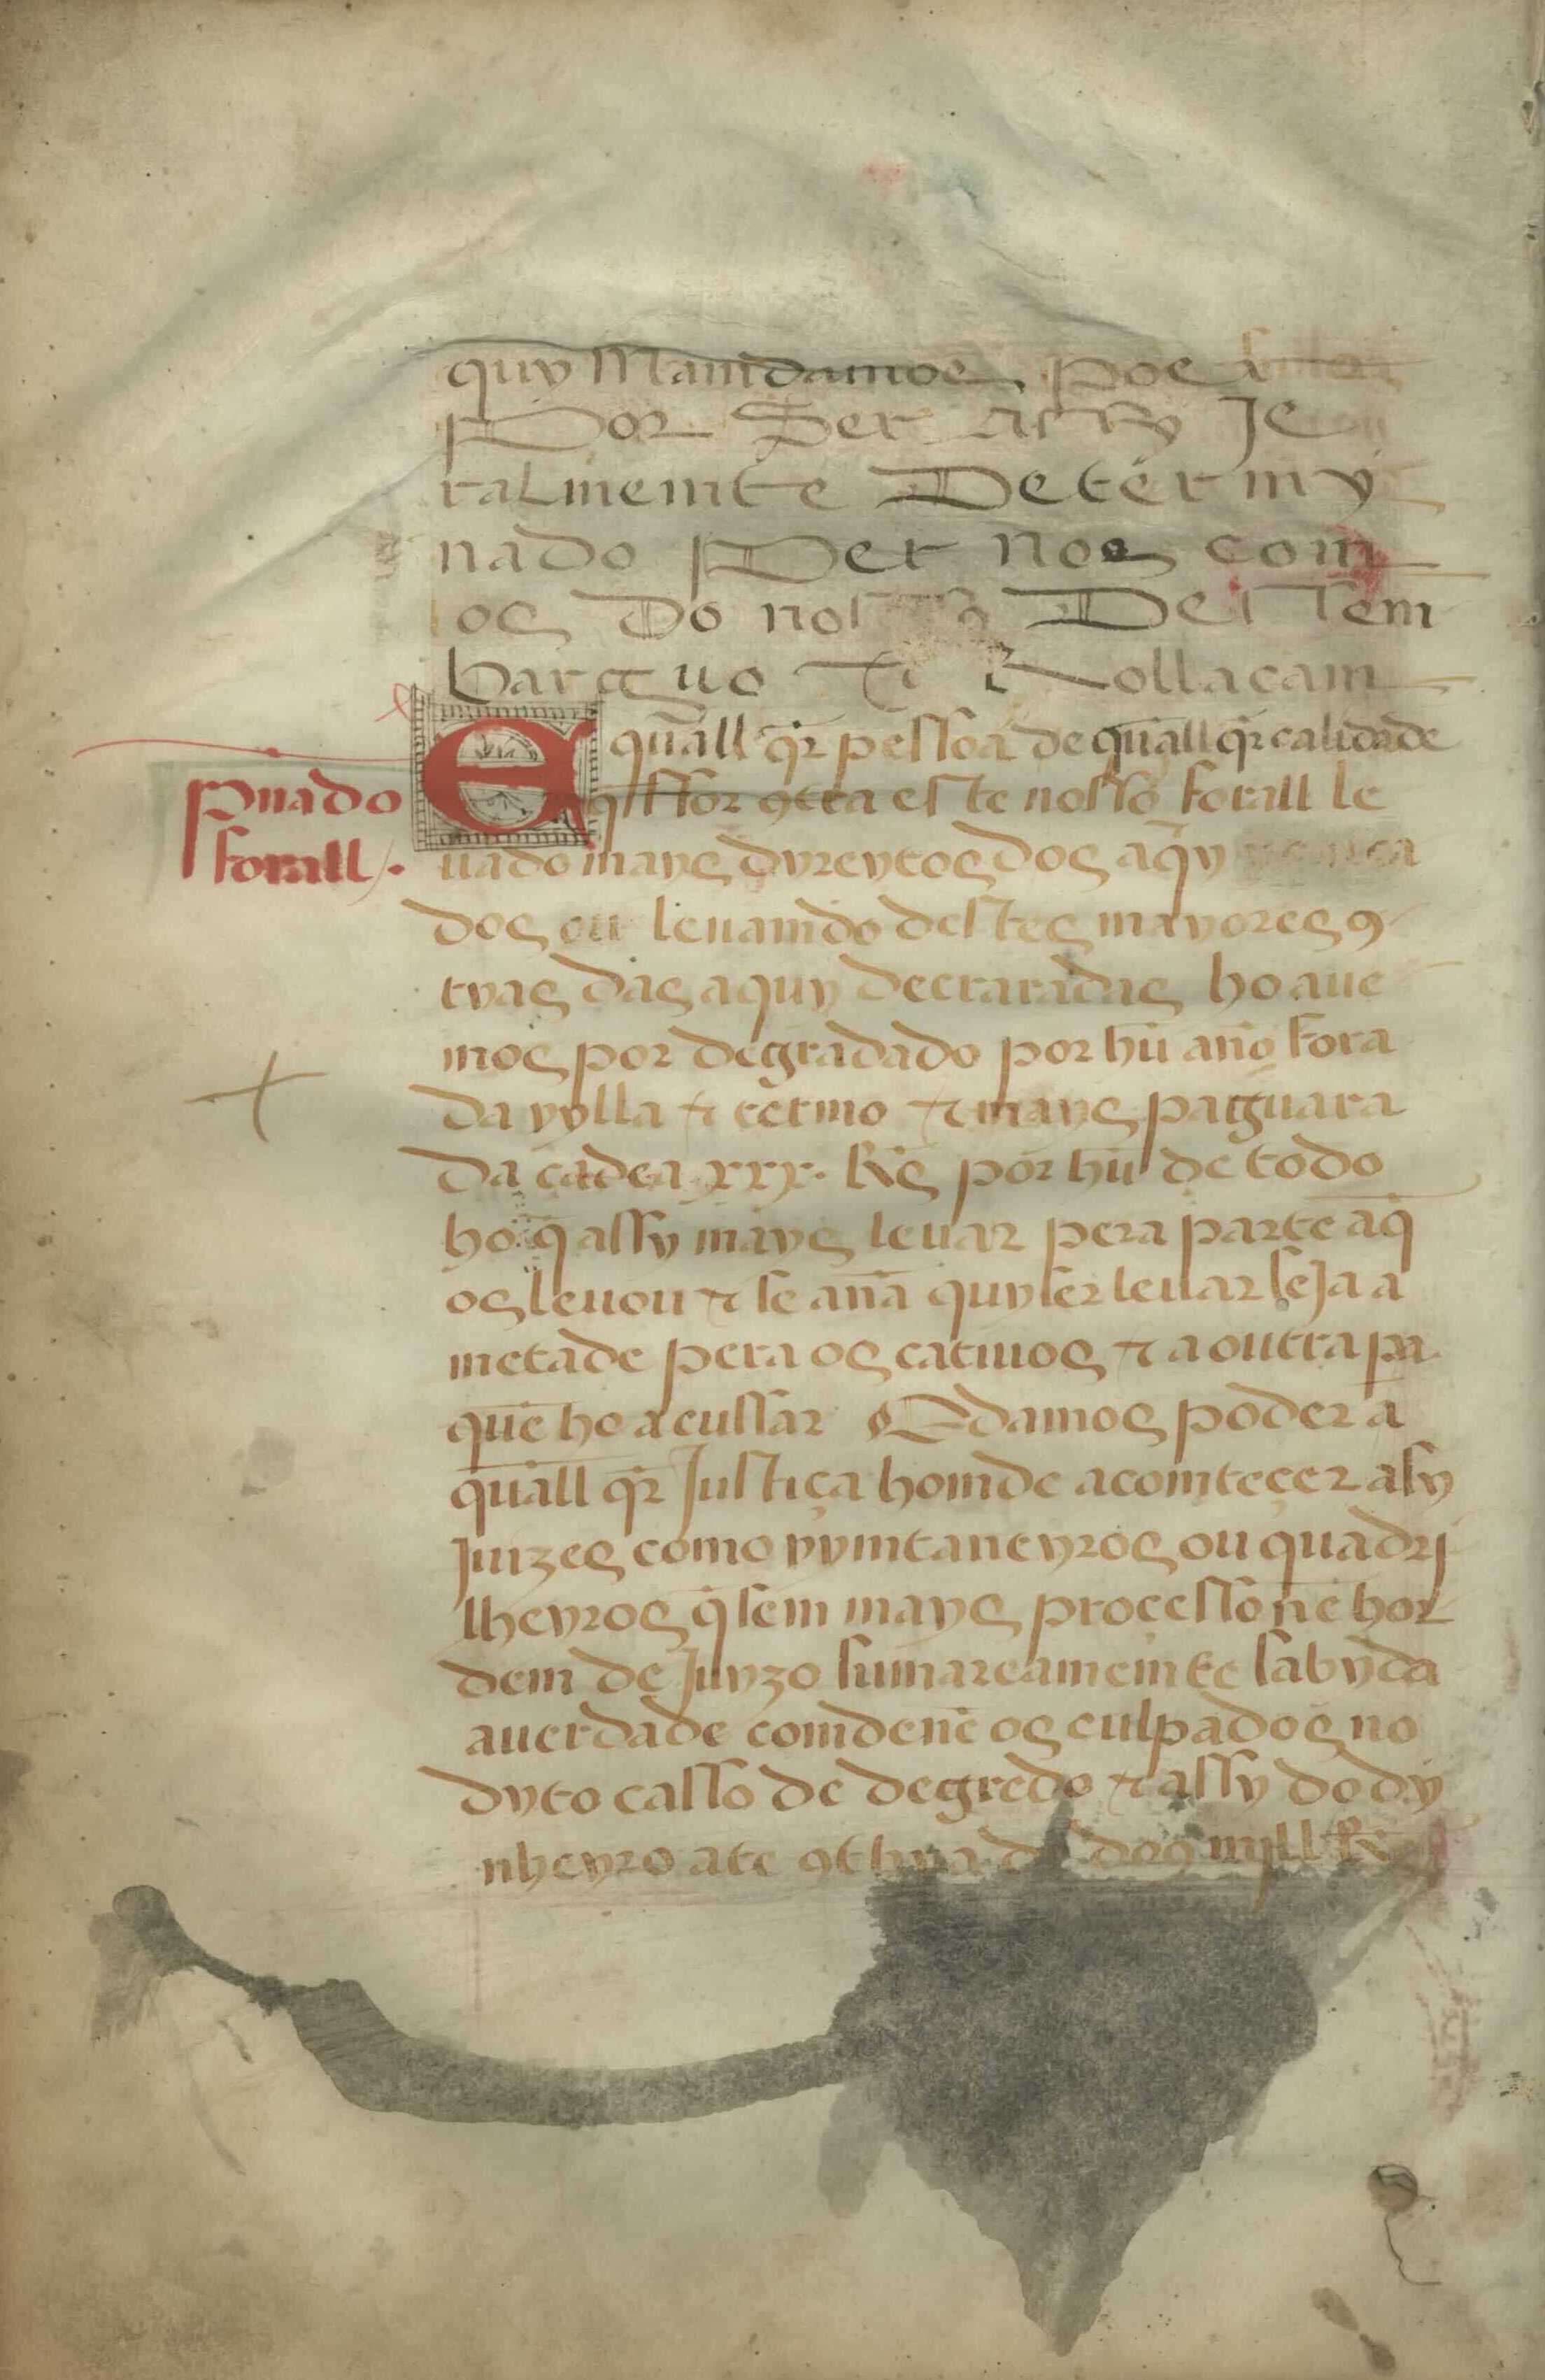 quy Mamdamos poer
Por Ser asRy Je
ralmemte Determy
nado Per nos com
os Do nosso Dessem
barguo Rollacam
E quall qr̃ pessoa de quall qr̃ calidade
pña do
forall.
q̃ ffor 9tra este nosso forall le
uado mays dyreytos dos aqȳ
dos ou leuamdo destes mayores 9
tyas das aquy decraradas ho aue
mos por degradado por hũ año fora
da vylla ⁊ termo ⁊ mays paguara
da cadea xxx. Rs̃ por hũ de todo
ho q̃ assy mays leuar pera parte aq̃
os leuou ⁊ se anã quyser leuar seja a
metade pera os catiuos ⁊ a outra pa
quẽ ho acussar E damos poder a
quall qr̃ Justiça homde acomteçer asy
Juizes como vymtaneyros ou quadrj
lheyros q̃ sem mays processo nẽ hor
dem de Juyzo sumareamemte sabyda
auerdade comdenẽ os culpados no
dyto casso de degredo ⁊ assy do dy
nheyro ate 9thya de dos myll Rs̃